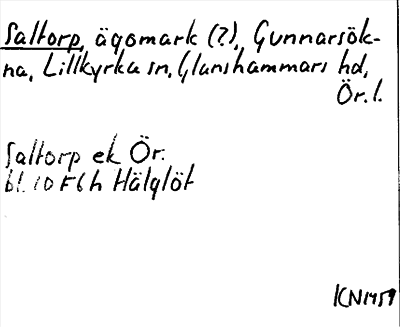 Saltorp, ägomark (?), Gunnarsök-
na, Lillkyrka sn, Glanshammars hd,
Ör. l.
Saltorp ek Ör.
bl. 10 F6h Hälglöt
KN1959